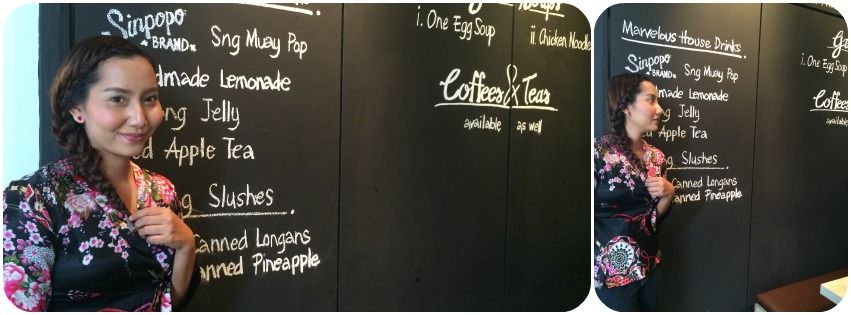 Sinpopo
BRAND
Sng Muay Pop
dmade Lemonade
ng Jelly
Apple Tea
Slushes
Canned Longans
anned Pineapple
i. One Egg Soup
ii. Chicken Noodle
Coffees & Teas
available as well
Marvelous House Drinks
Sinpopo
BRAND
Sng Muay Pop
made Lemonade
ng Jelly
Apple Tea
g Slushes
Canned Longans
anned Pineapple
i. One Egg Soup
Coffees
available